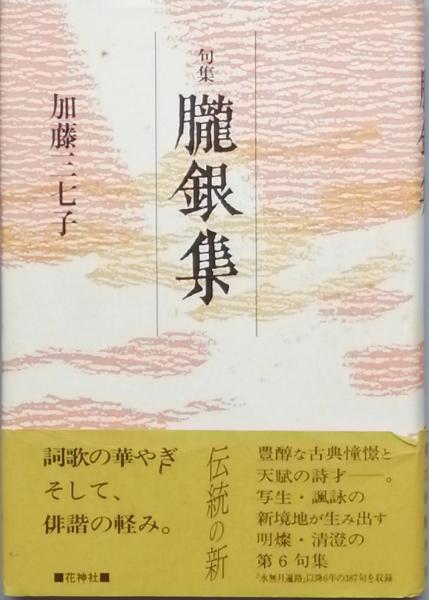 句集
朧銀集
加藤三七子
詞歌の華やぎ
そして、
俳諧の軽み。
■花神社■
伝統の新
豊醇な古典憧憬と
天賦の詩才──。
写生・諷詠の
新境地が生み出す
明燦・清澄の
第6句集
『水無月遍路』以降6年の387句を収録